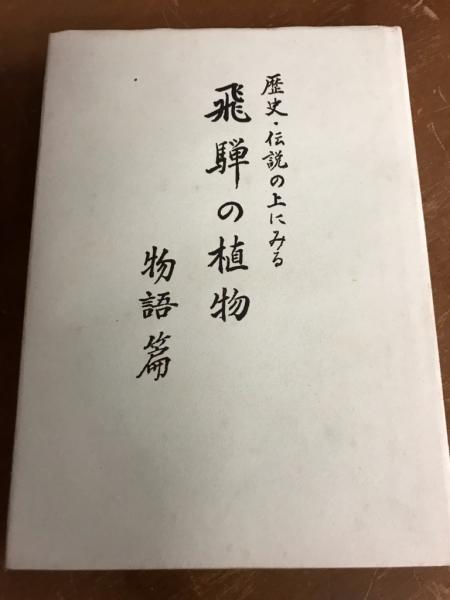 歴史・伝説の上にみる
飛騨の植物
物語篇